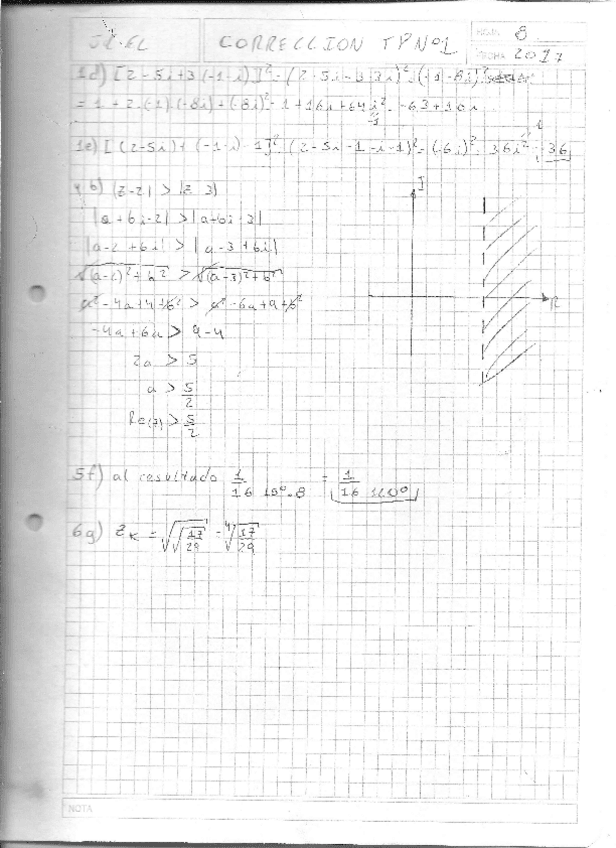 CORRECCION TP Nº1
HOJA 8
FECHA 2017
1d) [2-5i+3(-1-i)]² = (2-5i-3-3i)² = (-1-8i)²
= 1+2.(-1).(-8i)+(-8i)² = 1+16i+64i² = -63+16i
-1
1e) [(2-5i)+(-1-i)-1]² = (2-5i-1-i-1)² = (-6i)² = 36i² = -36
4b) |z-2| > |z-3|
|a+bi-2| > |a+bi-3|
|a-2+bi| > |a-3+bi|
√(a-2)²+b² > √(a-3)²+b²
a²-4a+4+b² > a²-6a+9+b²
-4a+6a > 9-4
2a > 5
a > 5/2
Re(z) > 5/2
I
R
5f) al resultado
6g) z_K = √√17/29 = ⁴√17/29
NOTA